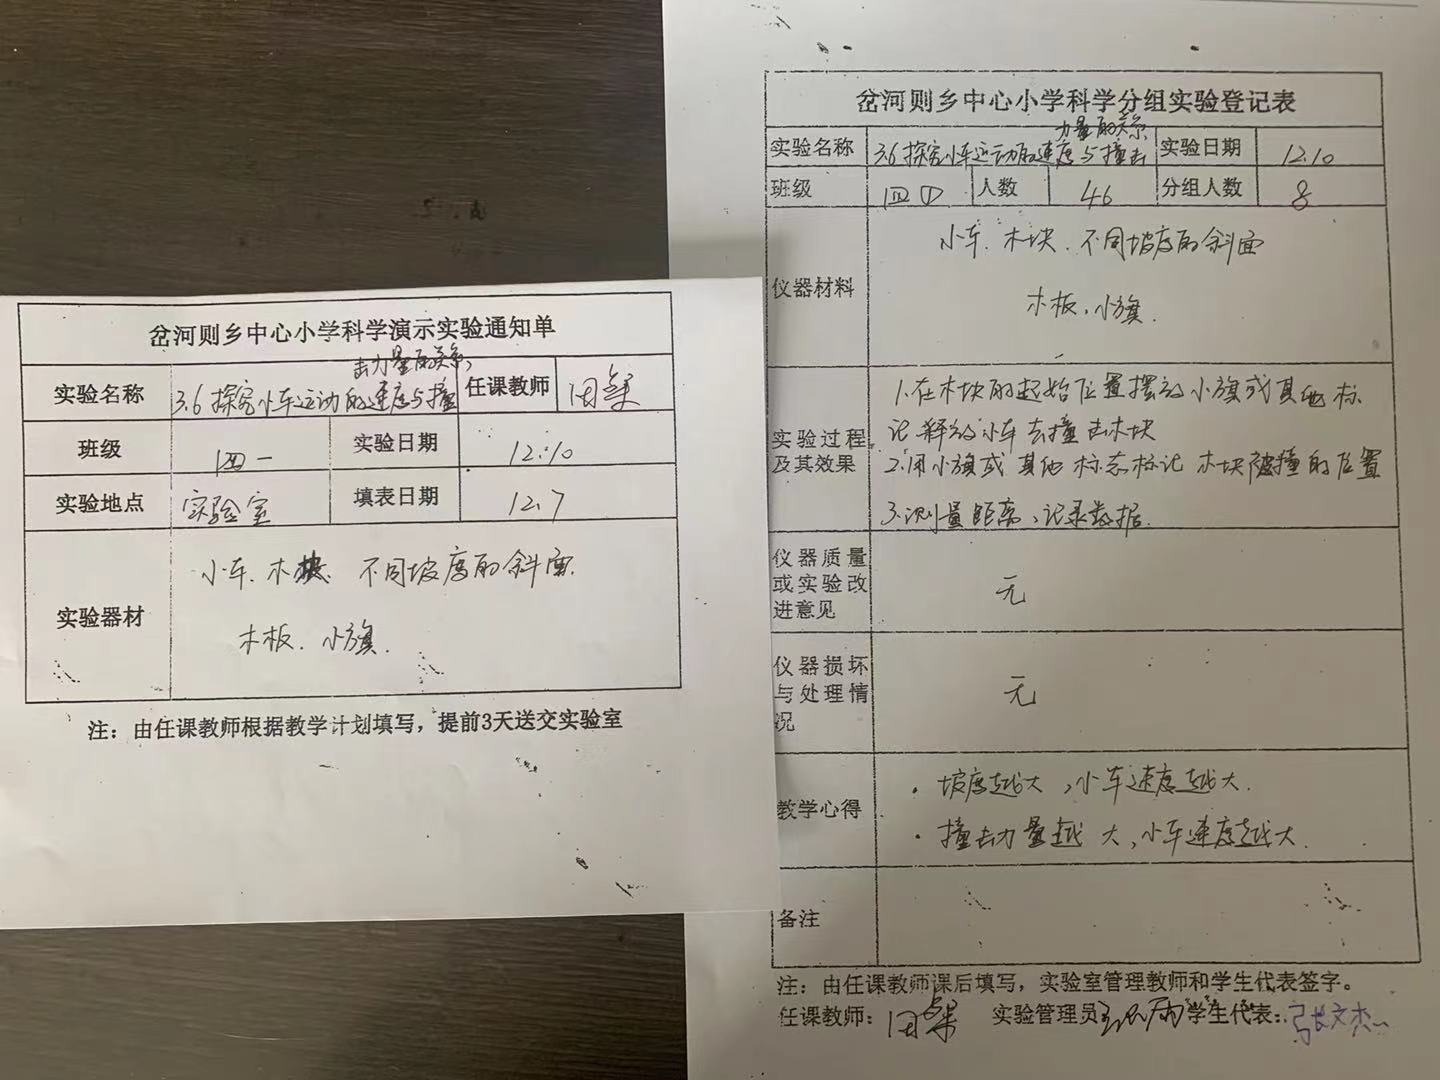 岔河则乡中心小学科学演示实验通知单
实验名称 3.6探究小车运动的速度与撞击力量的关系 任课教师
班级 四一 实验日期 12.10
实验地点 实验室 填表日期 12.7
实验器材 小车、木块、不同坡度的斜面
木板、小旗.
注：由任课教师根据教学计划填写，提前3天送交实验室
岔河则乡中心小学科学分组实验登记表
实验名称 3.6探究小车运动的速度与撞击力量的关系 实验日期 12.10
班级 四① 人数 46 分组人数 8
仪器材料 小车、木块、不同坡度的斜面
木板、小旗.
实验过程及其效果
1.在木块的起始位置摆放小旗或其他标
记释放小车去撞击木块
2.用小旗或其他标志标记木块被撞的位置
3.测量距离，记录数据.
仪器质量或实验改进意见 无
仪器损坏与处理情况 无
教学心得
·坡度越大，小车速度越大.
·撞击力量越大，小车速度越大.
备注
注：由任课教师课后填写，实验室管理教师和学生代表签字。
任课教师： 实验管理员 学生代表： 张文杰